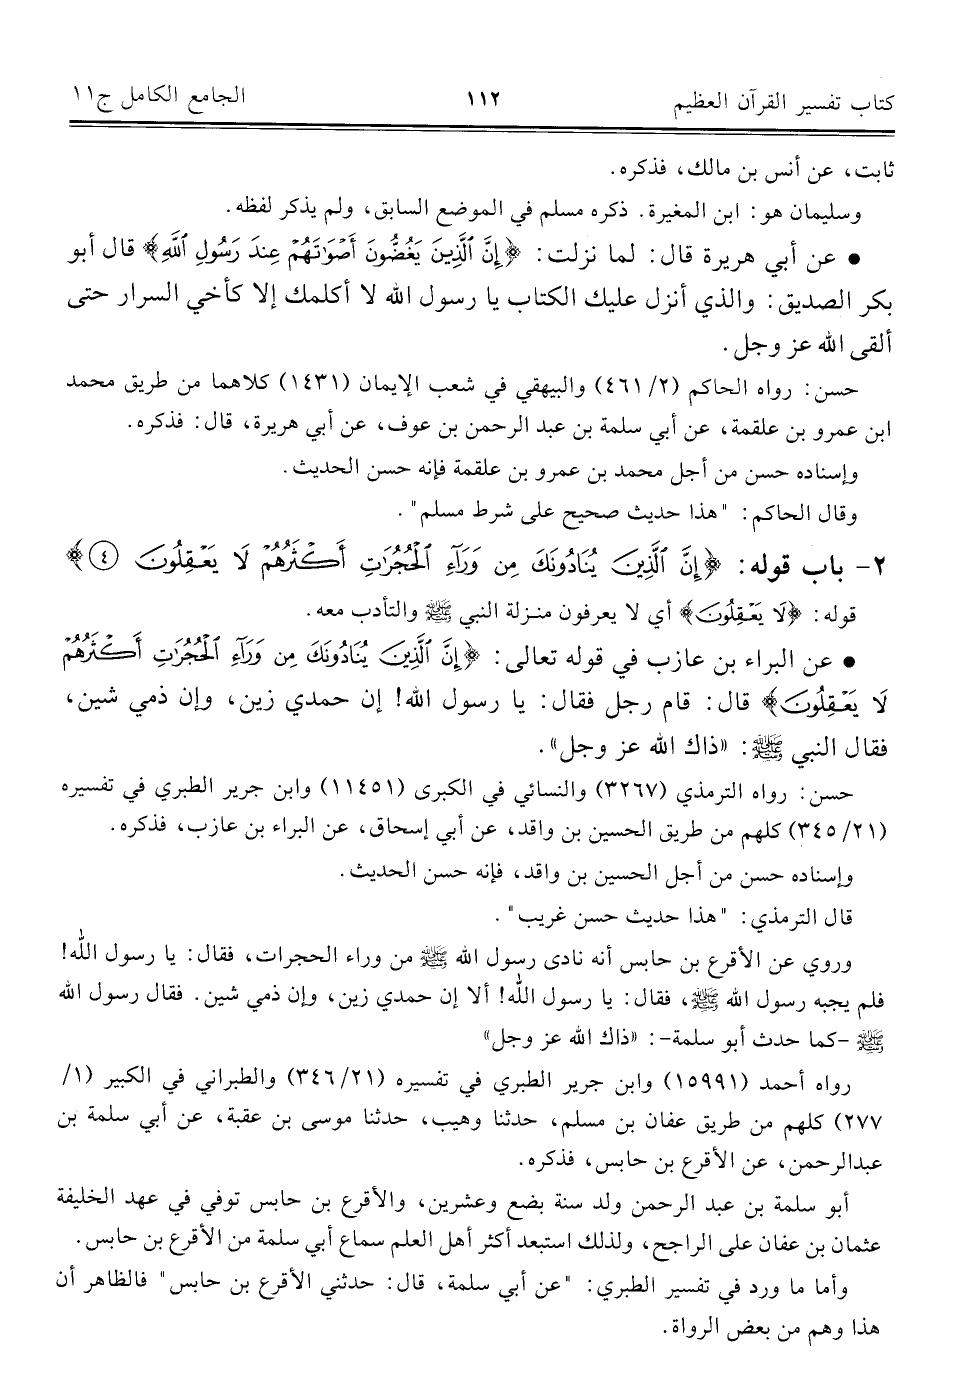 كتاب تفسير القرآن العظيم ١١٢ الجامع الكامل ج١١
ثابت، عن أنس بن مالك، فذكره.
وسليمان هو: ابن المغيرة. ذكره مسلم في الموضع السابق، ولم يذكر لفظه.
• عن أبي هريرة قال: لما نزلت: ﴿إِنَّ ٱلَّذِينَ يَغُضُّونَ أَصْوَٰتَهُمْ عِندَ رَسُولِ ٱللَّهِ﴾ قال أبو
بكر الصديق: والذي أنزل عليك الكتاب يا رسول الله لا أكلمك إلا كأخي السرار حتى
ألقى الله عز وجل.
حسن: رواه الحاكم (٢/ ٤٦١) والبيهقي في شعب الإيمان (١٤٣١) كلاهما من طريق محمد
ابن عمرو بن علقمة، عن أبي سلمة بن عبد الرحمن بن عوف، عن أبي هريرة، قال: فذكره.
وإسناده حسن من أجل محمد بن عمرو بن علقمة فإنه حسن الحديث.
وقال الحاكم: "هذا حديث صحيح على شرط مسلم".
٢- باب قوله: ﴿إِنَّ ٱلَّذِينَ يُنَادُونَكَ مِن وَرَآءِ ٱلْحُجُرَٰتِ أَكْثَرُهُمْ لَا يَعْقِلُونَ ﴿٤﴾﴾
قوله: ﴿لَا يَعْقِلُونَ﴾ أي لا يعرفون منزلة النبي ﷺ والتأدب معه.
• عن البراء بن عازب في قوله تعالى: ﴿إِنَّ ٱلَّذِينَ يُنَادُونَكَ مِن وَرَآءِ ٱلْحُجُرَٰتِ أَكْثَرُهُمْ
لَا يَعْقِلُونَ﴾ قال: قام رجل فقال: يا رسول الله! إن حمدي زين، وإن ذمي شين،
فقال النبي ﷺ: «ذاك الله عز وجل».
حسن: رواه الترمذي (٣٢٦٧) والنسائي في الكبرى (١١٤٥١) وابن جرير الطبري في تفسيره
(٢١/ ٣٤٥) كلهم من طريق الحسين بن واقد، عن أبي إسحاق، عن البراء بن عازب، فذكره.
وإسناده حسن من أجل الحسين بن واقد، فإنه حسن الحديث.
قال الترمذي: "هذا حديث حسن غريب".
وروي عن الأقرع بن حابس أنه نادى رسول الله ﷺ من وراء الحجرات، فقال: يا رسول الله!
فلم يجبه رسول الله ﷺ، فقال: يا رسول الله! ألا إن حمدي زين، وإن ذمي شين. فقال رسول الله
ﷺ -كما حدث أبو سلمة-: «ذاك الله عز وجل»
رواه أحمد (١٥٩٩١) وابن جرير الطبري في تفسيره (٢١/ ٣٤٦) والطبراني في الكبير (١/
٢٧٧) كلهم من طريق عفان بن مسلم، حدثنا وهيب، حدثنا موسى بن عقبة، عن أبي سلمة بن
عبدالرحمن، عن الأقرع بن حابس، فذكره.
أبو سلمة بن عبد الرحمن ولد سنة بضع وعشرين، والأقرع بن حابس توفي في عهد الخليفة
عثمان بن عفان على الراجح، ولذلك استبعد أكثر أهل العلم سماع أبي سلمة من الأقرع بن حابس.
وأما ما ورد في تفسير الطبري: "عن أبي سلمة، قال: حدثني الأقرع بن حابس" فالظاهر أن
هذا وهم من بعض الرواة.